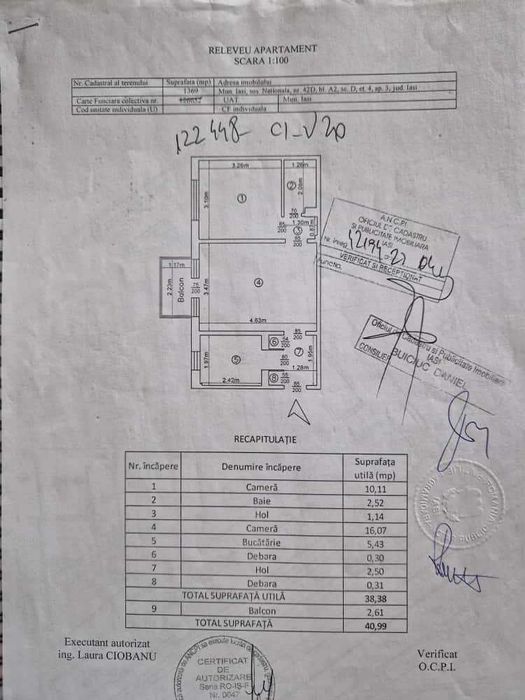 RELEVEU APARTAMENT
SCARA 1:100
Nr. Cadastral al terenului Suprafata (mp) Adresa imobilului
1369 Mun. Iasi, sos. Nationala, nr. 42D, bl. A2, sc. D, et. 4, ap. 3, jud. Iasi
Carte Funciara colectiva nr. UAT Mun. Iasi
Cod unitate individuala (U) CF individuala
122448 C1-U20
3.26m 1.26m
3.10m 1 2 2.06m
1.30m
3
1.17m
2.23m Balcon 3.47m 4
4.63m
6
1.97m 5 7 1.95m
2.42m 8 1.28m
A.N.C.P.I.
OFICIUL DE CADASTRU
SI PUBLICITATE IMOBILIARA
IASI
Nr. inreg.
VERIFICAT SI RECEPTIONAT
Functia
Oficiul de Cadastru si Publicitate Imobiliara
IASI
CONSILIER BUICIUC DANIEL
RECAPITULAȚIE
Nr. încăpere Denumire încăpere Suprafața utilă (mp)
1 Cameră 10,11
2 Baie 2,52
3 Hol 1,14
4 Cameră 16,07
5 Bucătărie 5,43
6 Debara 0,30
7 Hol 2,50
8 Debara 0,31
TOTAL SUPRAFAȚĂ UTILĂ 38,38
9 Balcon 2,61
TOTAL SUPRAFAȚĂ 40,99
Executant autorizat
ing. Laura CIOBANU
CERTIFICAT
DE
AUTORIZARE
Seria RO-IS-F
Nr. 0047
Verificat
O.C.P.I.